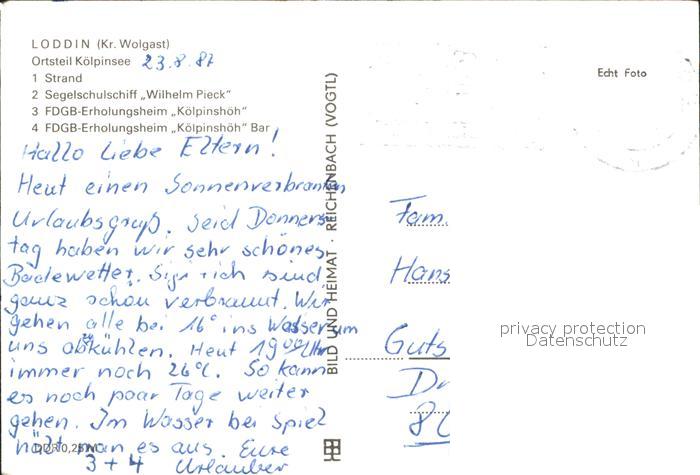 LODDIN (Kr. Wolgast)
Ortsteil Kölpinsee 23.8.87
1 Strand
2 Segelschulschiff „Wilhelm Pieck“
3 FDGB-Erholungsheim „Kölpinshöh“
4 FDGB-Erholungsheim „Kölpinshöh“ Bar
Hallo Liebe Eltern!
Heut einen Sonnenverbrannten
Urlaubsgruß. Seid Donners-
tag haben wir sehr schönes
Badewetter. sind
ganz schön verbrannt. Wir
gehen alle bei 16° ins Wasser um
uns abzukühlen. Heut 19 00 Uhr
immer noch 26°C. So kann
es noch paar Tage weiter
gehen. Im Wasser bei Spiel
hält man es aus. Eure
3 + 4 Urlauber
DDR 0,25 M
BILD UND HEIMAT · REICHENBACH (VOGTL)
Echt Foto
Fam.
Hans
Guts
Dr
8
privacy protection
Datenschutz